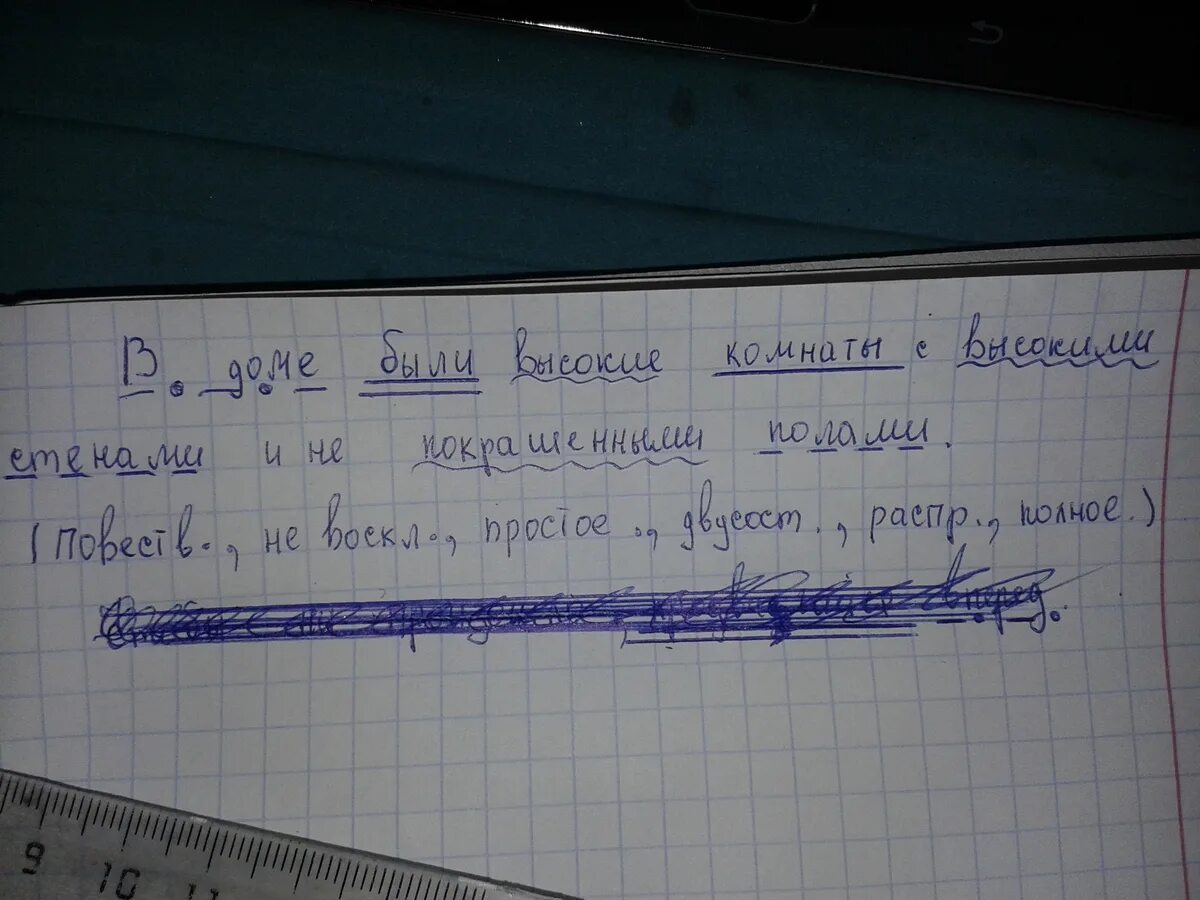 В доме были высокие комнаты с высокими
стенами и не покрашенными полами.
(Повеств., не воскл., простое., двусост., распр., полное.)
вперед.
9 10 11